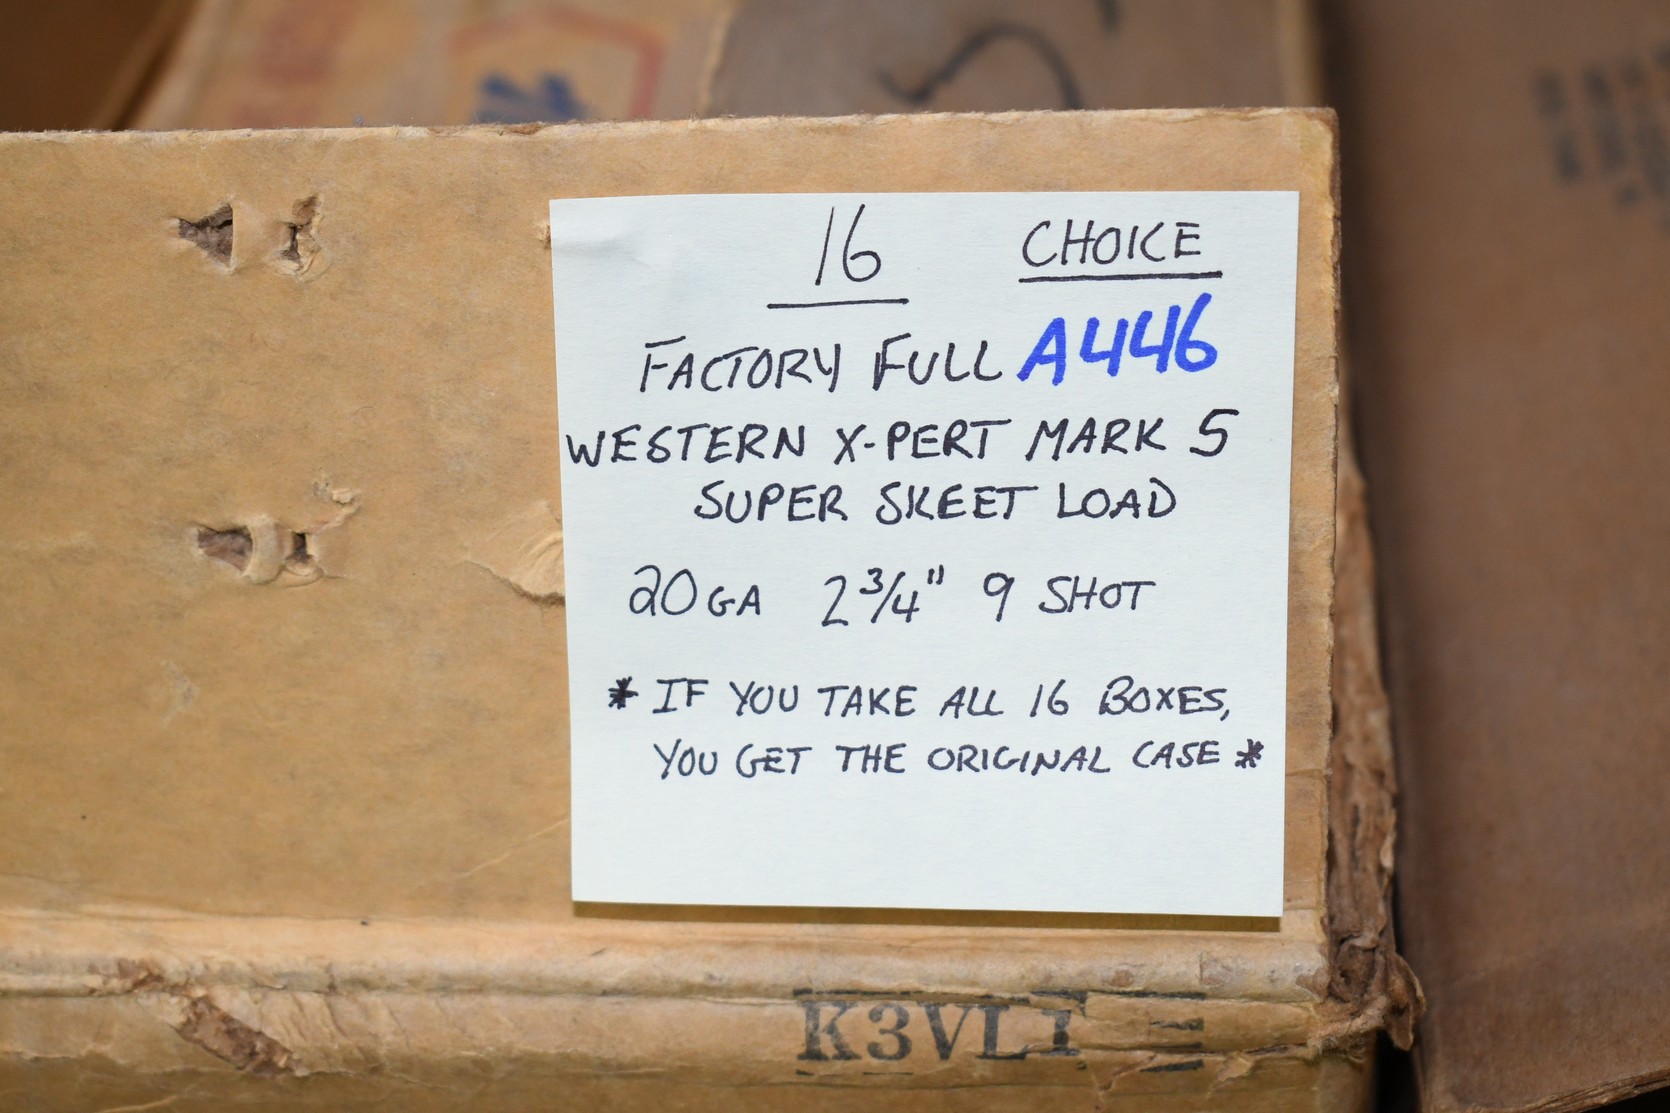 16 CHOICE
FACTORY FULL A446
WESTERN X-PERT MARK 5
SUPER SKEET LOAD
20GA 2 3/4" 9 SHOT
* IF YOU TAKE ALL 16 BOXES,
YOU GET THE ORIGINAL CASE *